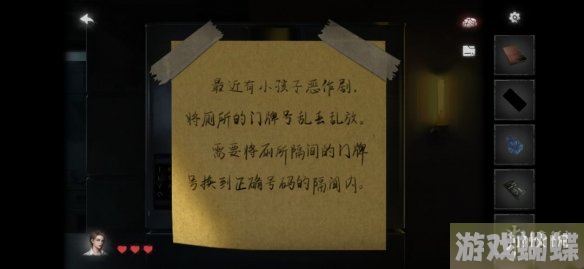 最近有小孩子恶作剧，
将厕所的门牌号乱丢乱放。
需要将厕所隔间的门牌
号换到正确号码的隔间内。
游戏蝴蝶